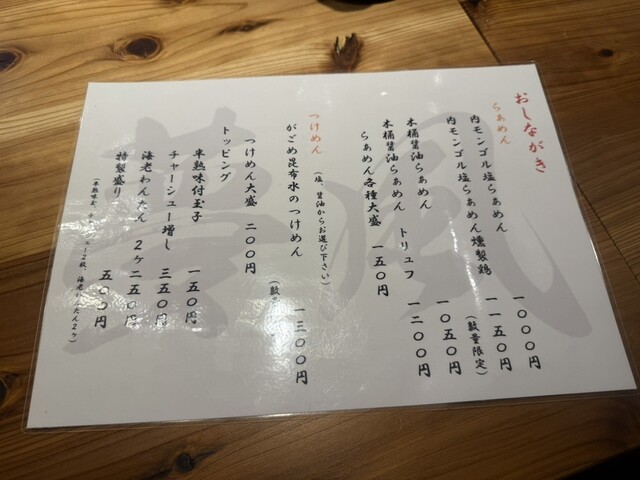 おしながき
らぁめん
内モンゴル塩らぁめん 一〇〇〇円
内モンゴル塩らぁめん燻製鶏 一一五〇円
(数量限定)
木桶醤油らぁめん 一〇五〇円
木桶醤油らぁめん トリュフ 一二〇〇円
らぁめん各種大盛 一五〇円
つけめん
(塩、醤油からお選び下さい)
がごめ昆布水のつけめん 一三〇〇円
(数
つけめん大盛 二〇〇円
トッピング
半熟味付玉子 一五〇円
チャーシュー増し 三五〇円
海老わんたん 2ヶ 二五〇円
特製盛り 五〇〇円
(半熟味玉、チャーシュー2枚、海老わんたん2ヶ)